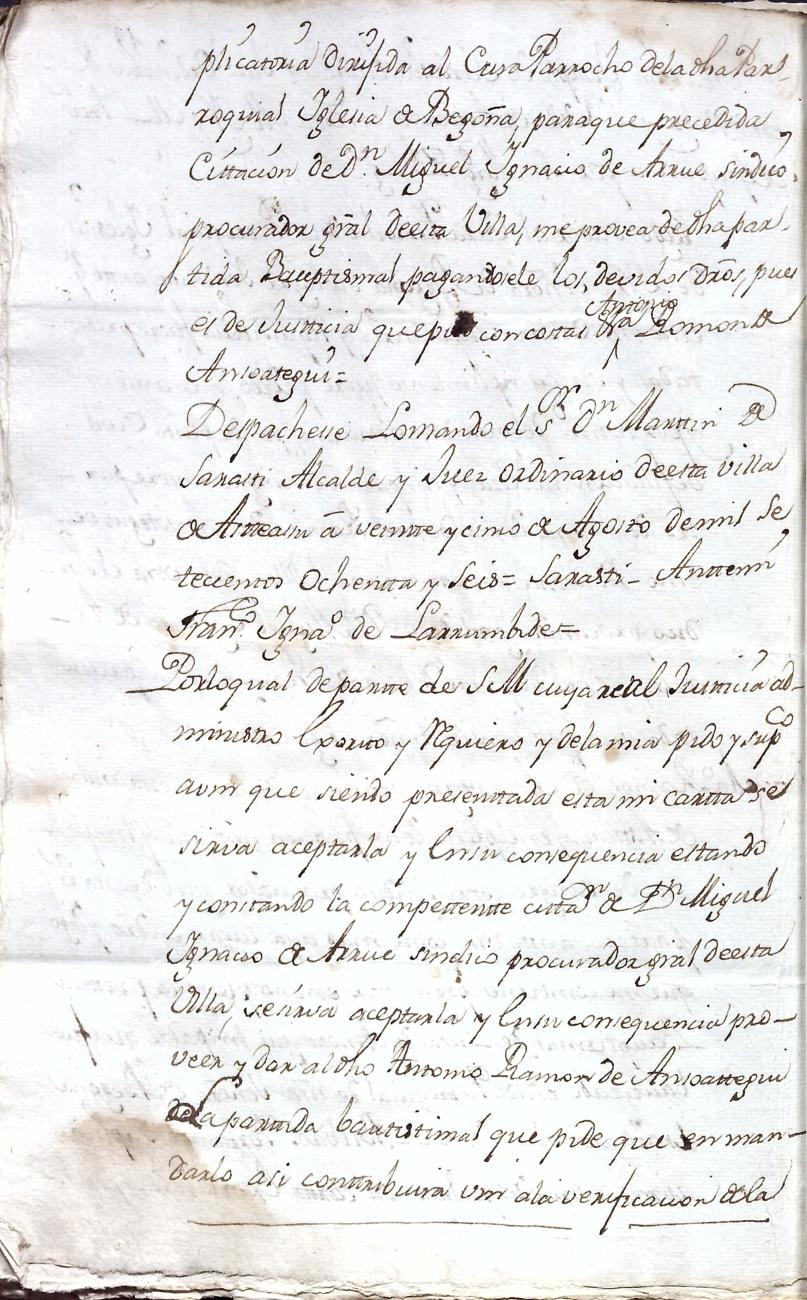 plicatoria dirijida al Cura Parrocho dela dha Par-
roquial Iglesia de Begoña, paraque precedida
Cittacion de Dn. Miguel Ygnacio de Arrue sindico
procurador gral deesta Villa, me provea de dha par-
tida Bauptismal pagandosele los devidos Dros, pues
es de Justicia que pido con costas Antonio Ramon de
Ansoategui=
Despachesse Lomando el Sr. Dn Marttin de
Sarasti Alcalde y Juez ordinario deesta villa
de Astteasu â veintte y cinco de Agosto de mil se
tecientos Ochentta y seis= Sarasti- Anttemi
Franco. Ignao. de Larrumbide=
Porloqual departte de SM cuya real Justticia ad-
ministro Exorto y Rquiero y dela mia pido y supco
avm que siendo presenttada esta mi cartta se
sirva aceptarla y Ensu consequencia estando
y constando la compettentte cittan de Dn Miguel
Ignacio de Arrue sindico procurador gral deesta
Villa, se sirva aceptarla y Ensu consequencia pro-
veer y dar al dho Antonio Ramon de Ansoattegui
dela parttida bauttitimal que pide que en man-
darlo asi conttribuira vm ala verificacion de la